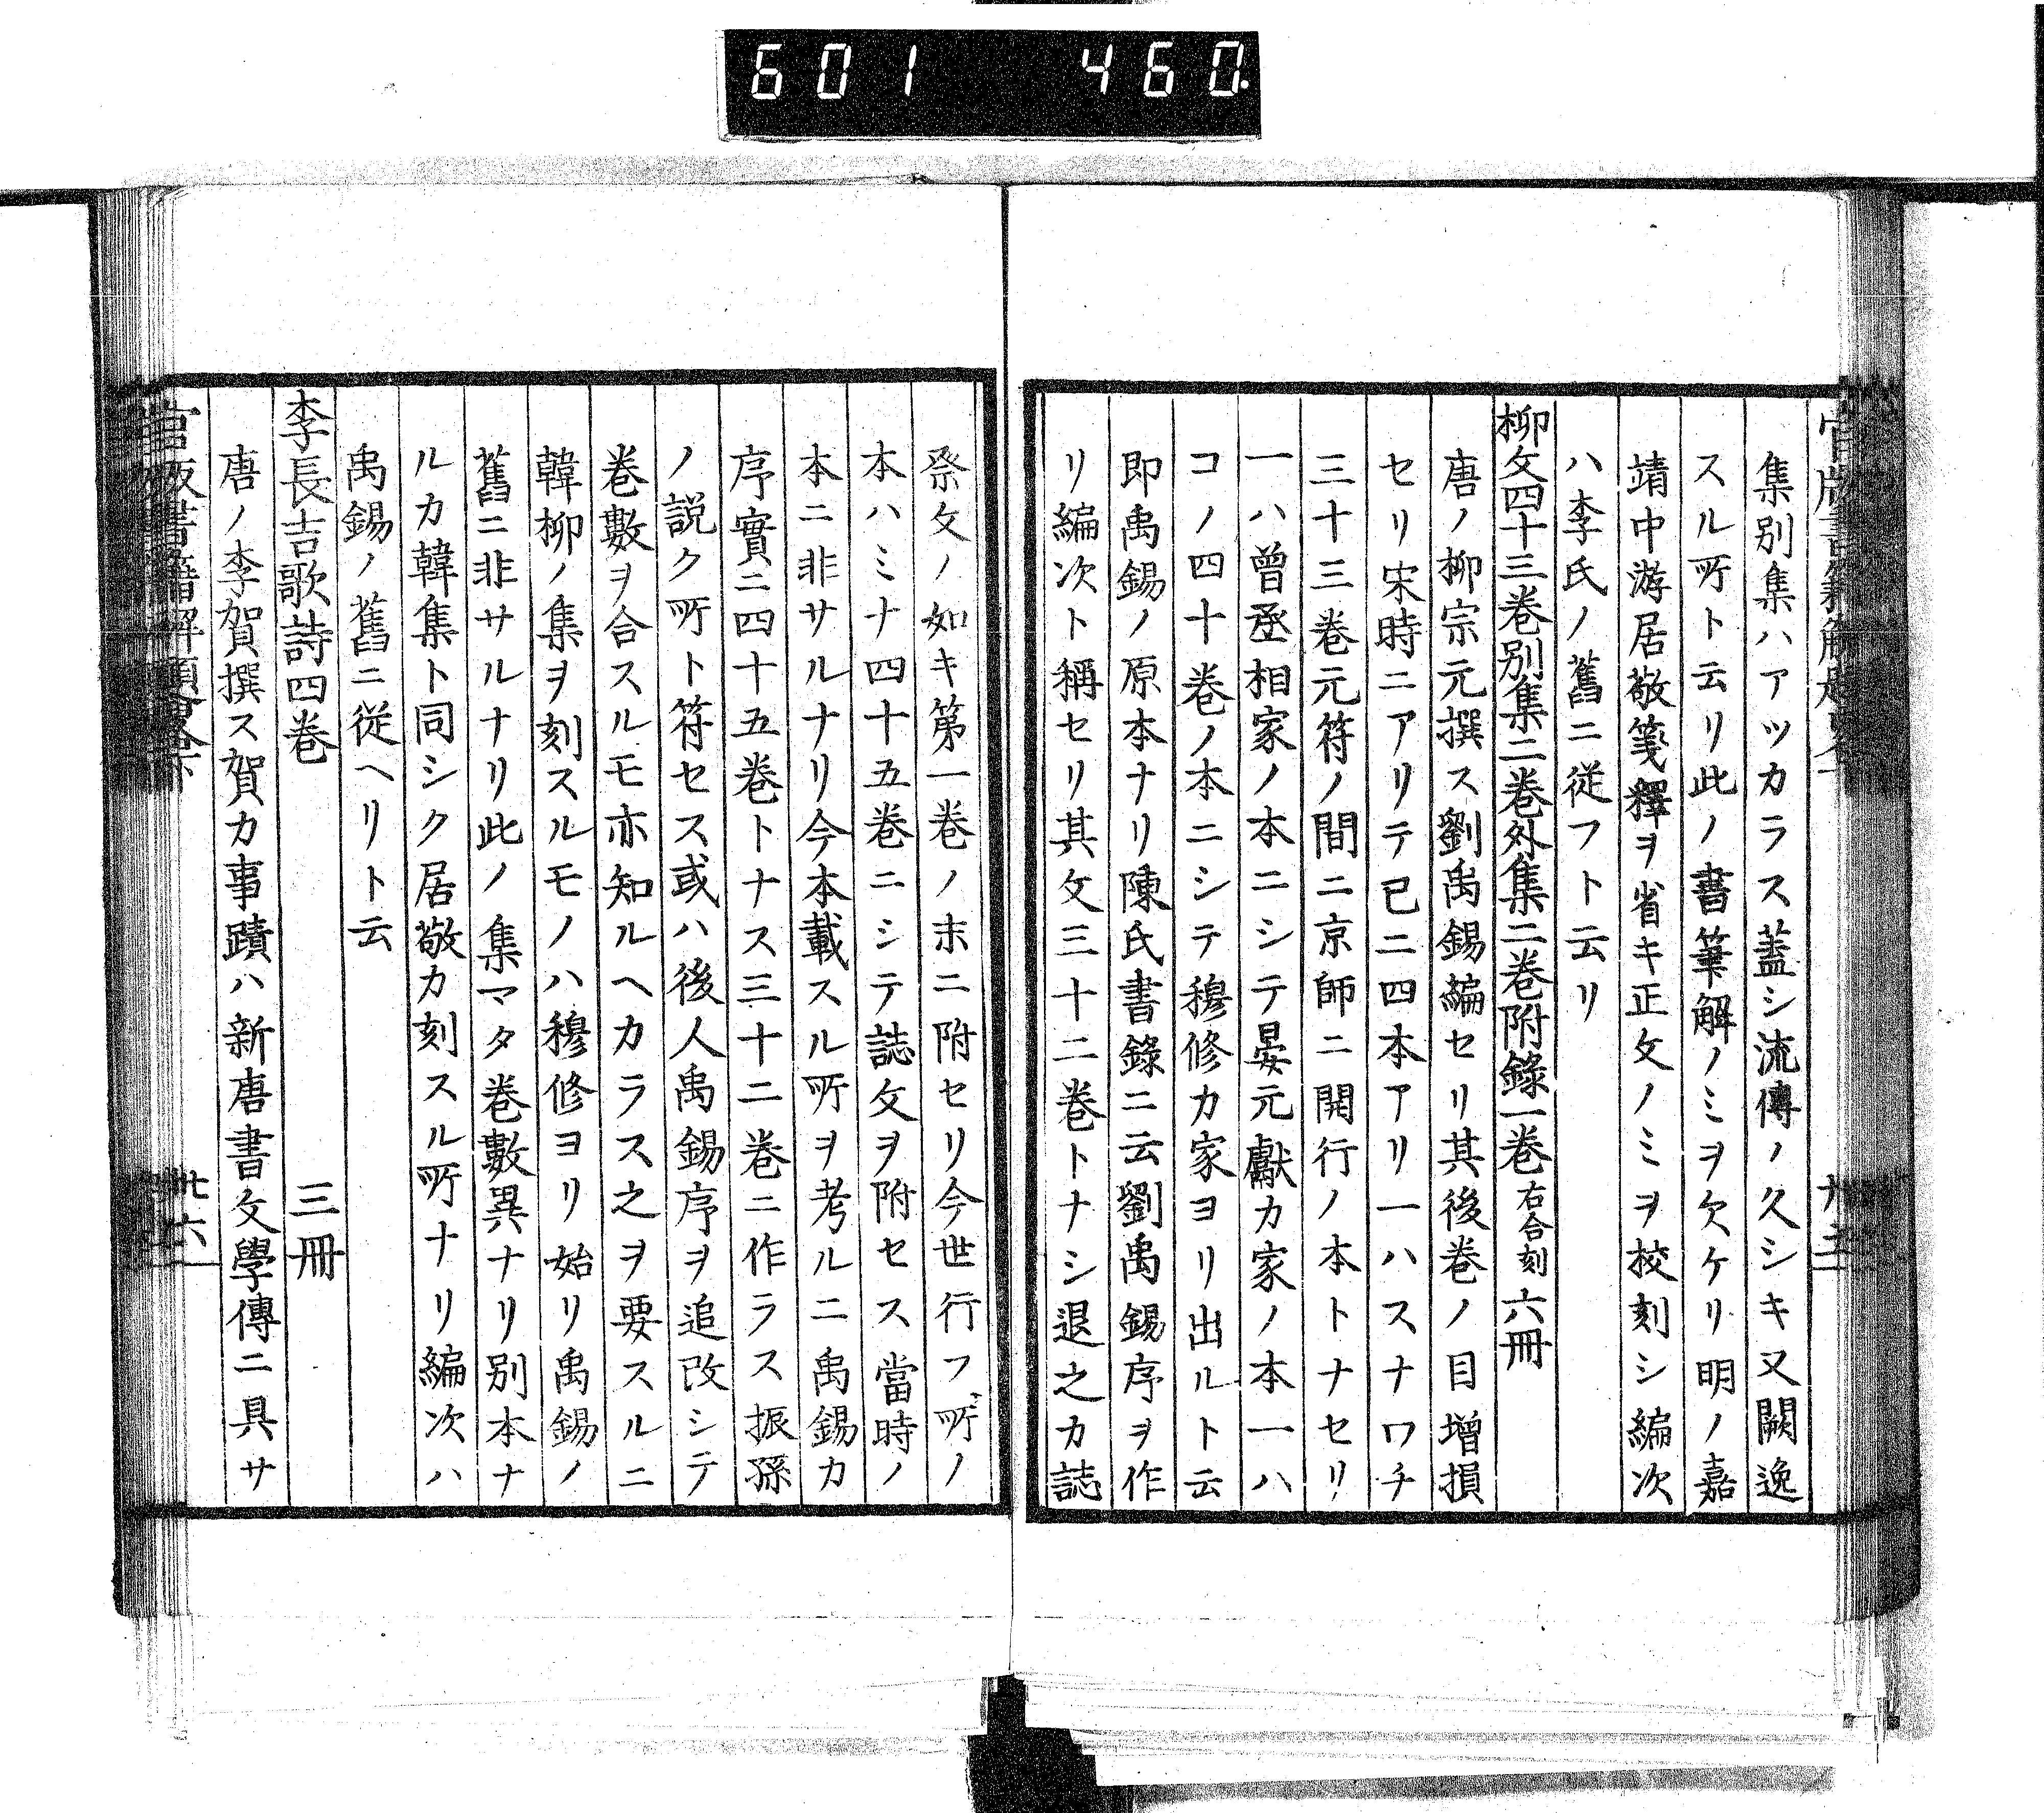 601 460.
集別集ハアツカラス蓋シ流傳ノ久シキ又闕逸
スル所ト云リ此ノ書筆解ノミヲ欠ケリ明ノ嘉
靖中游居敬箋釋ヲ省キ正文ノミヲ校刻シ編次
ハ李氏ノ舊ニ從フト云リ
柳文四十三巻別集二巻外集二巻附錄一巻 右合刻 六冊
唐ノ柳宗元撰ス劉禹錫編セリ其後巻ノ目增損
セリ宋時ニアリテ已ニ四本アリ一ハスナワチ
三十三巻元符ノ間ニ京師ニ開行ノ本トナセリ
一ハ曾丞相家ノ本ニシテ晏元獻カ家ノ本一ハ
コノ四十巻ノ本ニシテ穆修カ家ヨリ出ルト云
即禹錫ノ原本ナリ陳氏書錄ニ云劉禹錫序ヲ作
リ編次ト稱セリ其文三十二巻トナシ退之カ誌
祭文ノ如キ第一巻ノ末ニ附セリ今世行フ所ノ
本ハミナ四十五巻ニシテ誌文ヲ附セス當時ノ
本ニ非サルナリ今本載スル所ヲ考ルニ禹錫カ
序實ニ四十五巻トナス三十二巻ニ作ラス振孫
ノ説ク所ト符セス或ハ後人禹錫序ヲ追改シテ
巻數ヲ合スルモ亦知ルヘカラス之ヲ要スルニ
韓柳ノ集ヲ刻スルモノハ穆修ヨリ始リ禹錫ノ
舊ニ非サルナリ此ノ集マタ巻數異ナリ別本ナ
ルカ韓集ト同シク居敬カ刻スル所ナリ編次ハ
禹錫ノ舊ニ從ヘリト云
李長吉歌詩四巻 三冊
唐ノ李賀撰ス賀カ事蹟ハ新唐書文學傳ニ具サ
官版書籍解題略下 廿六